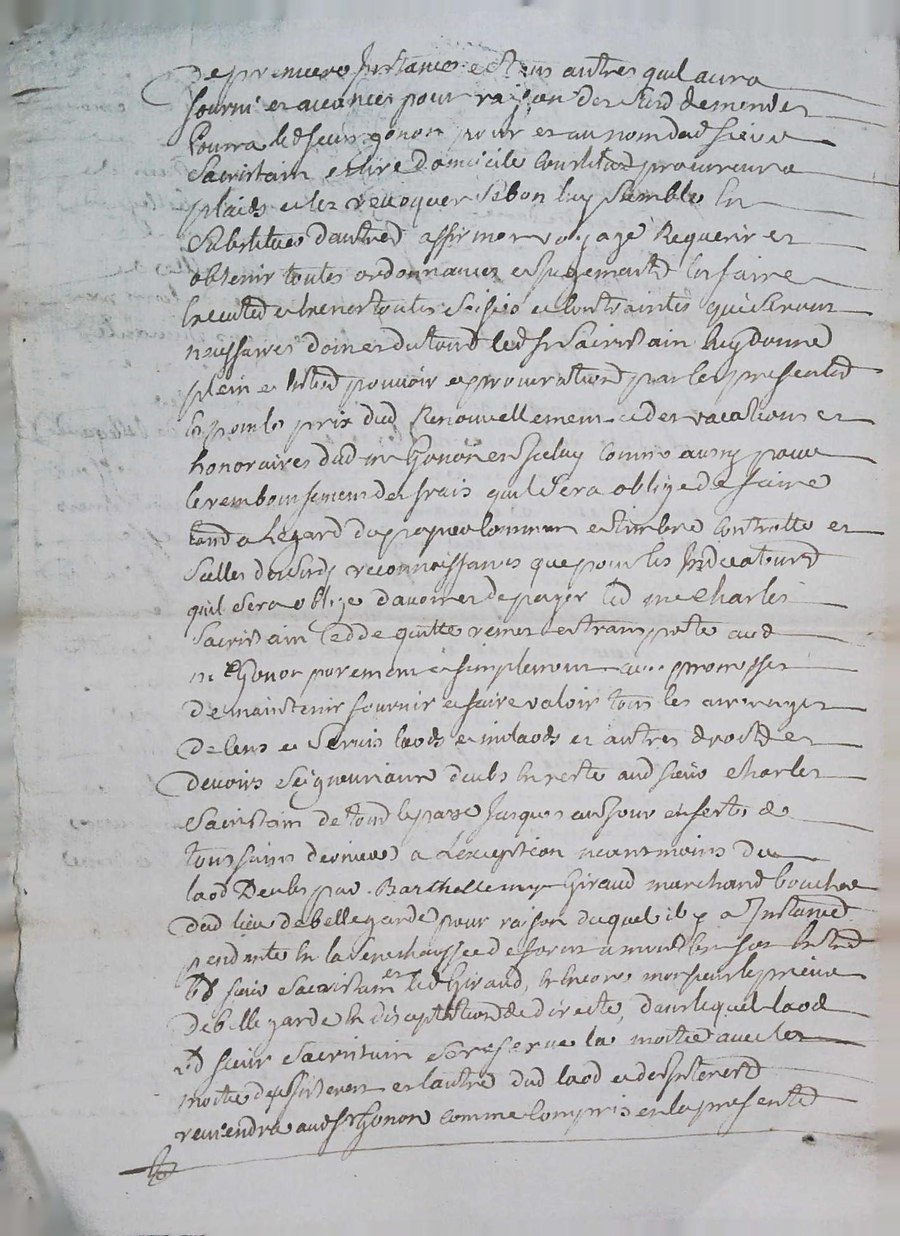 de premiere Instance et tous autres quil aura
fourni et avancés pour raison de ce Et demendes
Pourra led sieur gonon pour et au nom dud sieur
Sacristain eslire domicile Constitué procureur a
plaids et les revoquer Sebon luy Semble En
Substituer dautres affirmer voyage Requerir et
obtenir toutes ordonnances et Jugements les faire
Executer et Exercer toutes Saisies et Contraintes qui Seront
necessaires donner du tout led Sr Sacristain luy donne
plein et Entier pouvoir et procuration par les presentes
Et pour le prix dud Renouvellement et des vacations et
honoraires dud me Gonon et Iceluy comme aussy pour
le remboursement des frais quil Sera obligé de faire
tant a Legard du papier commun et timbré Controlle et
Scelles desdits reconnoissances que pour les Indicateurs
quil Sera obligé davoir et de payer led me Charles
Sacristain cedde quitte remet et transporte aud
me Gonon purement et simplement avec promesse
de maintenir fournir et faire valoir tous les arrerages
de Cens et Servis laods et milaods et autres droits et
devoirs Seigneuriaux deubs En reste aud sieur Charles
Sacristain de tout le passé Jusques au Jour et feste de
toussains dernier a Lexception neantmoins du
laod Deubs par Barthellemy Giraud marchand boucher
dud lieu de bellegarde pour raison duquel il y a Instance
pendante En la Senechaussée de forest a montbrison Entre
led sieur Sacristain et led Giraud, Et encore monsieur le prieur
de bellegarde En disceptation de directe, dans lequel laod
led sieur Sacristain Se reserve la moitié avec les
moitié des Interest et lautre dud laod et des Interests
reviendra aud Sr Gonon comme Compris en la presente